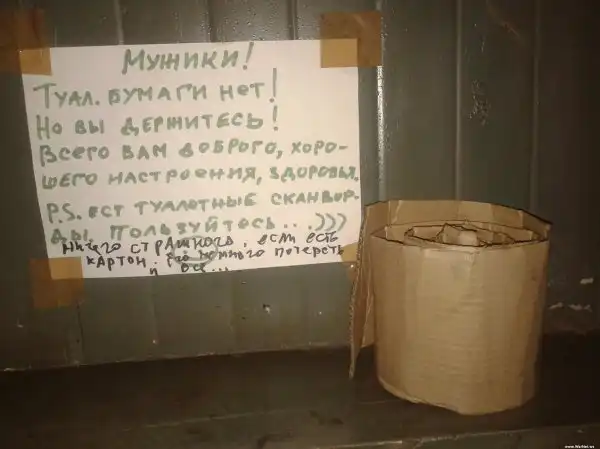 Мужики!
Туал. бумаги нет!
Но вы держитесь!
Всего вам доброго, хоро-
шего настроения, здоровья.
P.S. ест туалетные сканвор-
ды, пользуйтесь...)))
Ничего страшного, если есть
картон. Его немного потереть
и все...